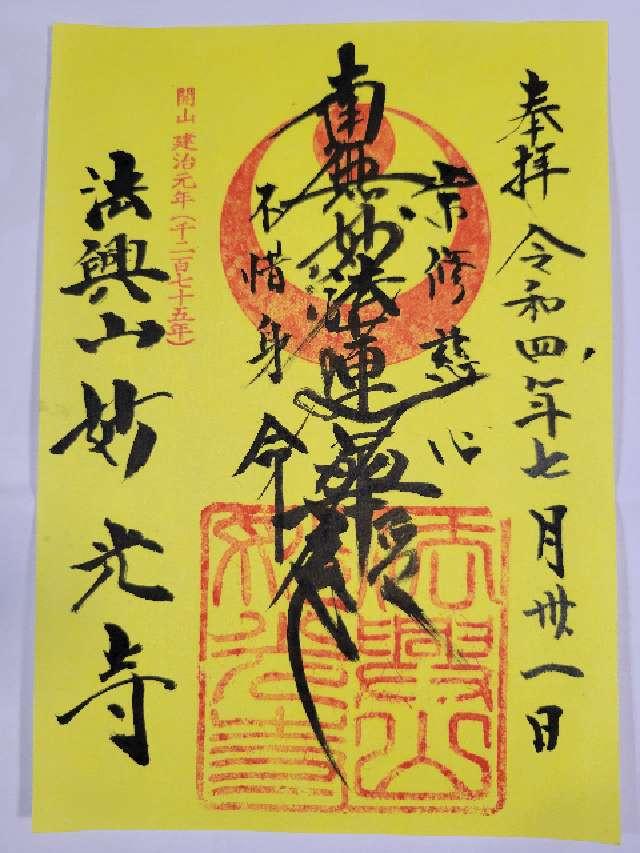 奉拝 令和四年七月卅一日
常修慈心
南無妙法蓮華経
不惜身命
開山 建治元年(千二百七十五年)
法興山妙光寺
法興山
妙光寺